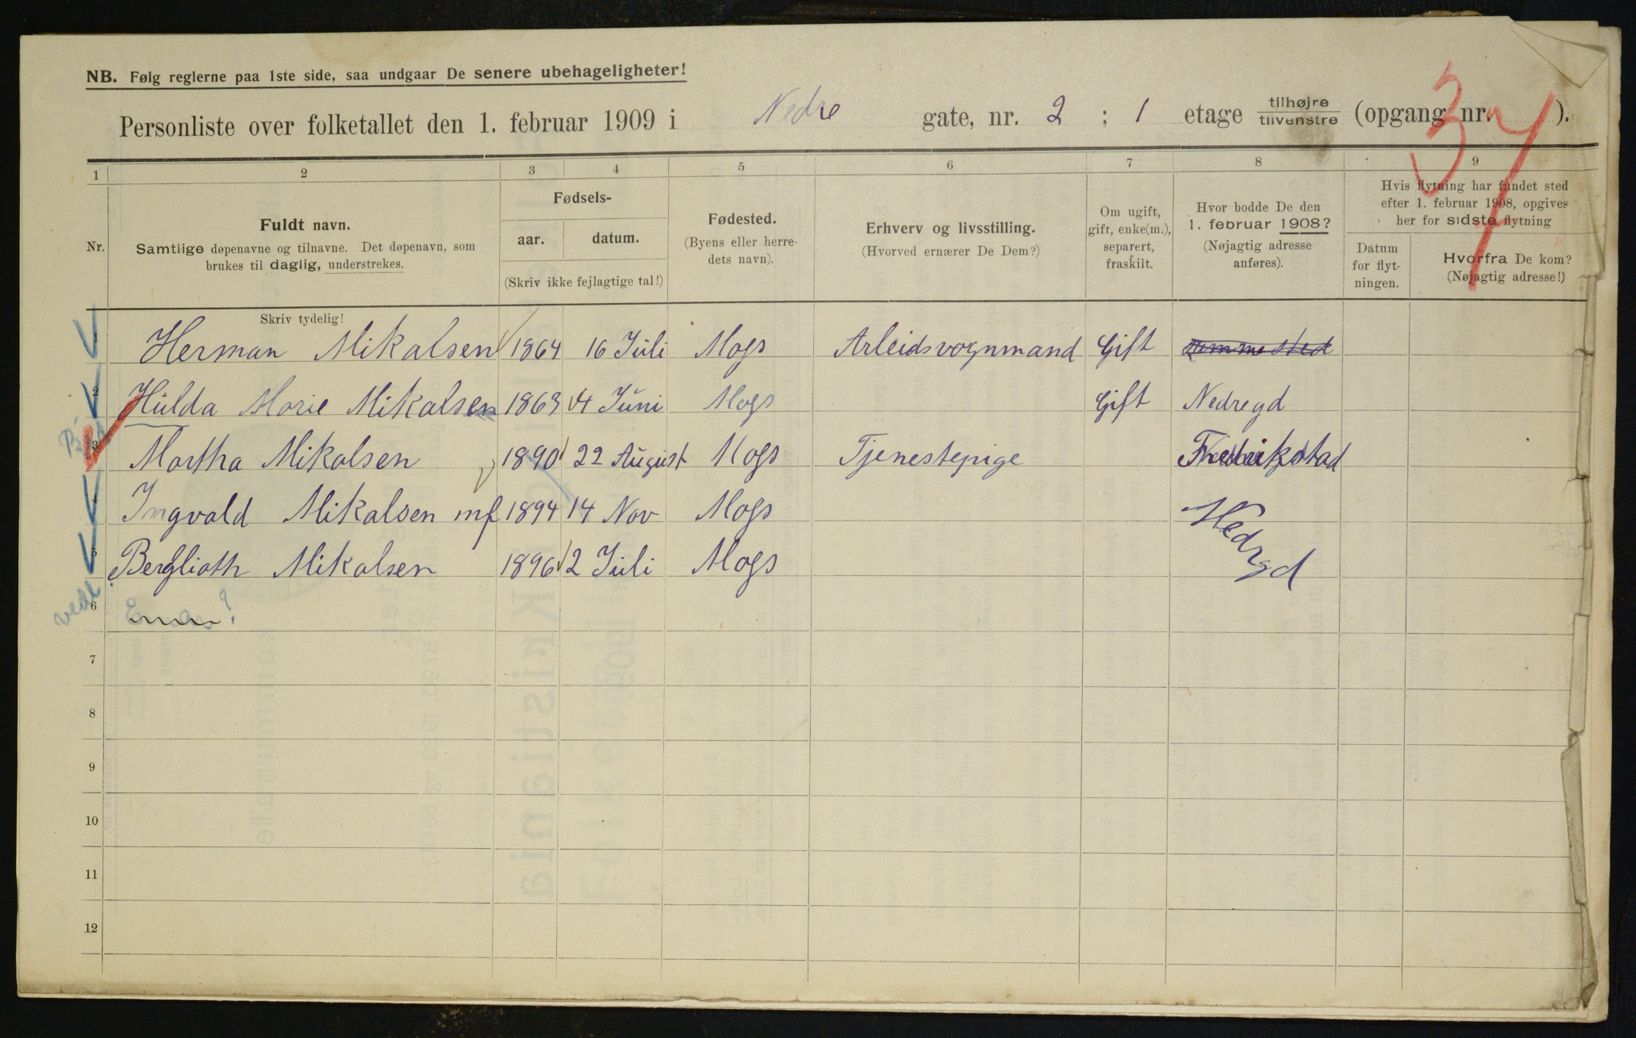 NB. Følg reglerne paa 1ste side, saa undgaar De senere ubehageligheter!
Personliste over folketallet den 1. februar 1909 i Nedre gate, nr. 2 ; 1 etage tilhøjre tilvenstre (opgang nr. ).
37
1 2 3 4 5 6 7 8 9
Nr.
Fuldt navn.
Samtlige døpenavne og tilnavne. Det døpenavn, som
brukes til daglig, understrekes.
Skriv tydelig!
Fødsels-
aar. datum.
(Skriv ikke fejlagtige tal!)
Fødested.
(Byens eller herre-
dets navn).
Erhverv og livsstilling.
(Hvorved ernærer De Dem?)
Om ugift,
gift, enke(m.),
separert,
fraskilt.
Hvor bodde De den
1. februar 1908?
(Nøjagtig adresse
anføres).
Hvis flytning har fundet sted
efter 1. februar 1908, opgives
her for sidste flytning
Datum
for flyt-
ningen.
Hvorfra De kom?
(Nøjagtig adresse!)
1 Herman Mikalsen 1864 16 Juli Mogs Arleidsvognmand Gift
2 Hulda Marie Mikalsen 1863 4 Juni Mogs Gift Nedregd
3 Martha Mikalsen 1890 22 August Mogs Tjenestepige Fredrikstad
4 Ingvald Mikalsen mf 1894 14 Nov Mogs Nedregd
5 Berglioth Mikalsen 1896 2 Juli Mogs
6
7
8
9
10
11
12